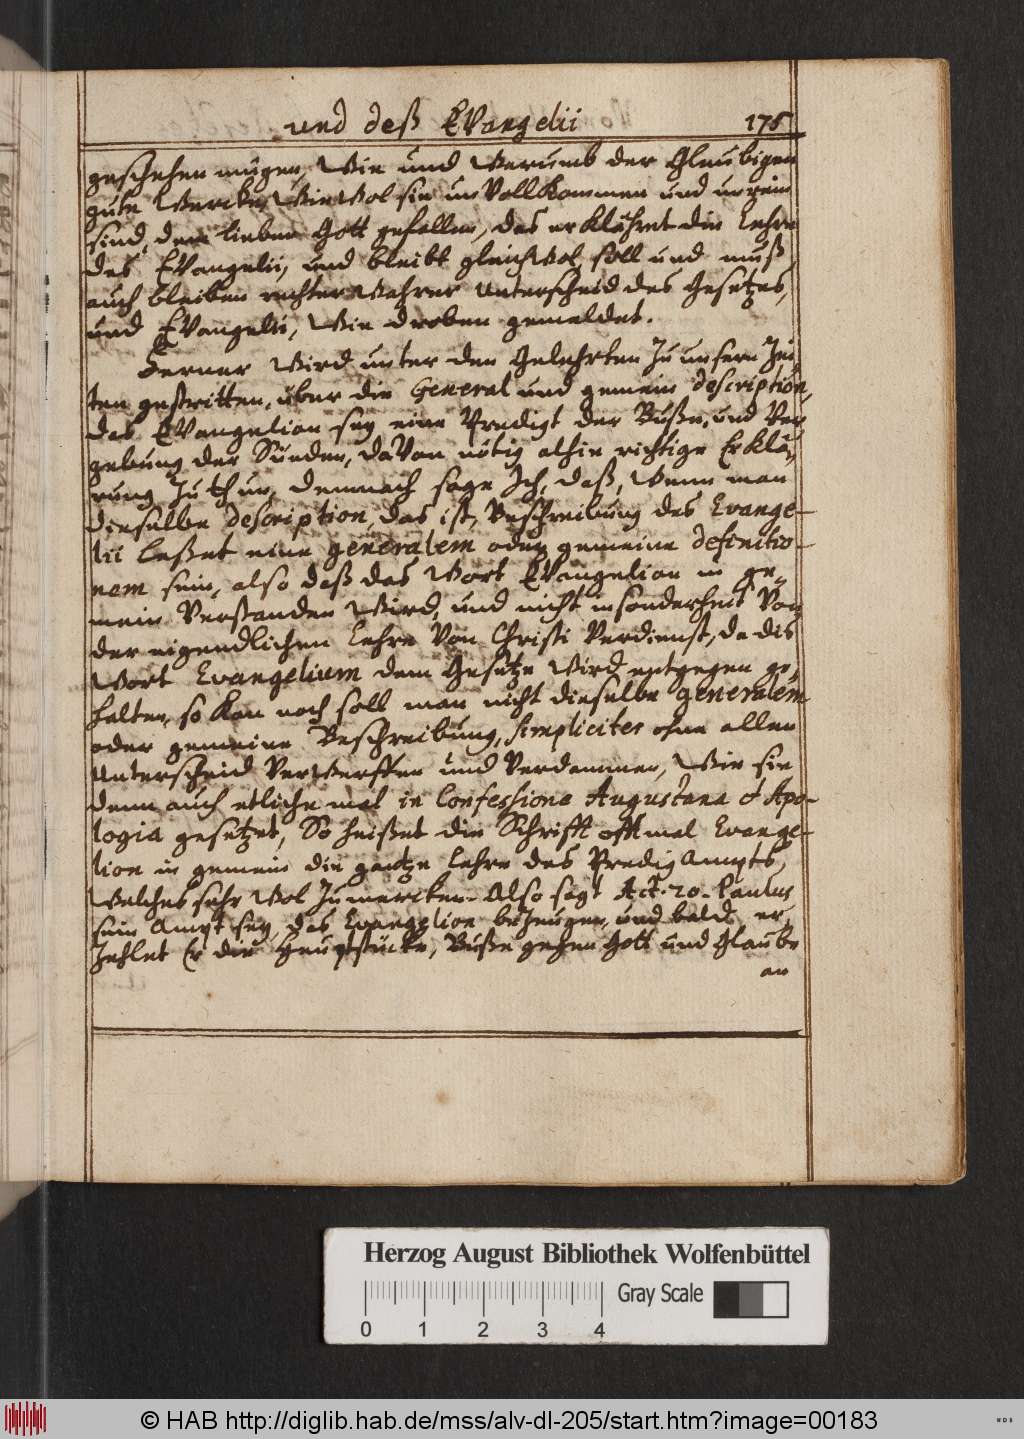 und deß Evangelii 175
geschehen mügen, Wie und Warumb der Glaubigen
gute Wercke, WieWol sie unVollkommen und unrein
sind, dem lieben Gott gefallen, das erklähret die Lehre
des Evangelii, und bleibt gleichWol, soll und muß
auch bleiben rechter Wahrer Unterscheid des Gesetzes,
und Evangelii, Wie droben gemeldet.
Ferner Wird unter den Gelehrten Zu unsern Zei
ten gestritten, über die General und gemein description,
das Evangelion sey eine Predigt der Buße, und Ver
gebung der Sünden, daVon nötig alhie richtige Erklä,
rung Zu thun, demnach sage Ich, daß, Wenn man
dieselbe description, das ist, Beschreibung des Evange-
lii laßet eine generalem oder gemeine definitio-
nem sein, also daß das Wort Evangelion in ge,
mein Verstanden Wird, und nicht insonderheit Von
der eigendlichen Lehre Von Christi Verdienst, da dis
Wort Evangelium dem Gesetze Wird entgegen ge,
halten, so kan noch soll man nicht dieselbe generalem
oder gemeine Beschreibung, simpliciter ohne allen
Unterscheid VerWerffen und Verdammen, Wie sie
denn auch etliche mal in Confessione Augustana & Apo-
logia gesetzet, So heißet die Schrifft offtmal Evange-
lion in gemein die gantze Lehre des Predig Ampts,
Welches sehr Wol Zu mercken. Also sagt Act. 20. Paulus
sein Ampt sey, das Evangelion beZeugen, und bald er,
Zehlet Er die Heuptstücke, Buße gehen Gott und Glaube
an
Herzog August Bibliothek Wolfenbüttel
Gray Scale
0 1 2 3 4
© HAB http://diglib.hab.de/mss/alv-dl-205/start.htm?image=00183